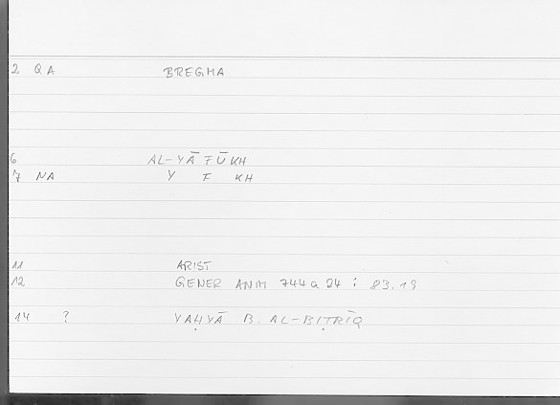 2 QA BREGMA
6 AL-YĀFŪKH
7 NA Y F KH
11 ARIST
12 GENER ANIM 744a 24 : 83.19
14 ? YAḤYĀ B. AL-BIṬRĪQ